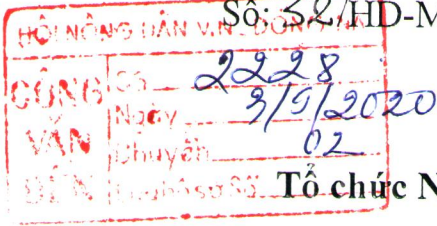 Số: 52/HD-M
HỘI NÔNG DÂN V.N
CÔNG VĂN ĐẾN
Số 2228
Ngày 3/9/2020
Chuyển 02
Tổ chức N